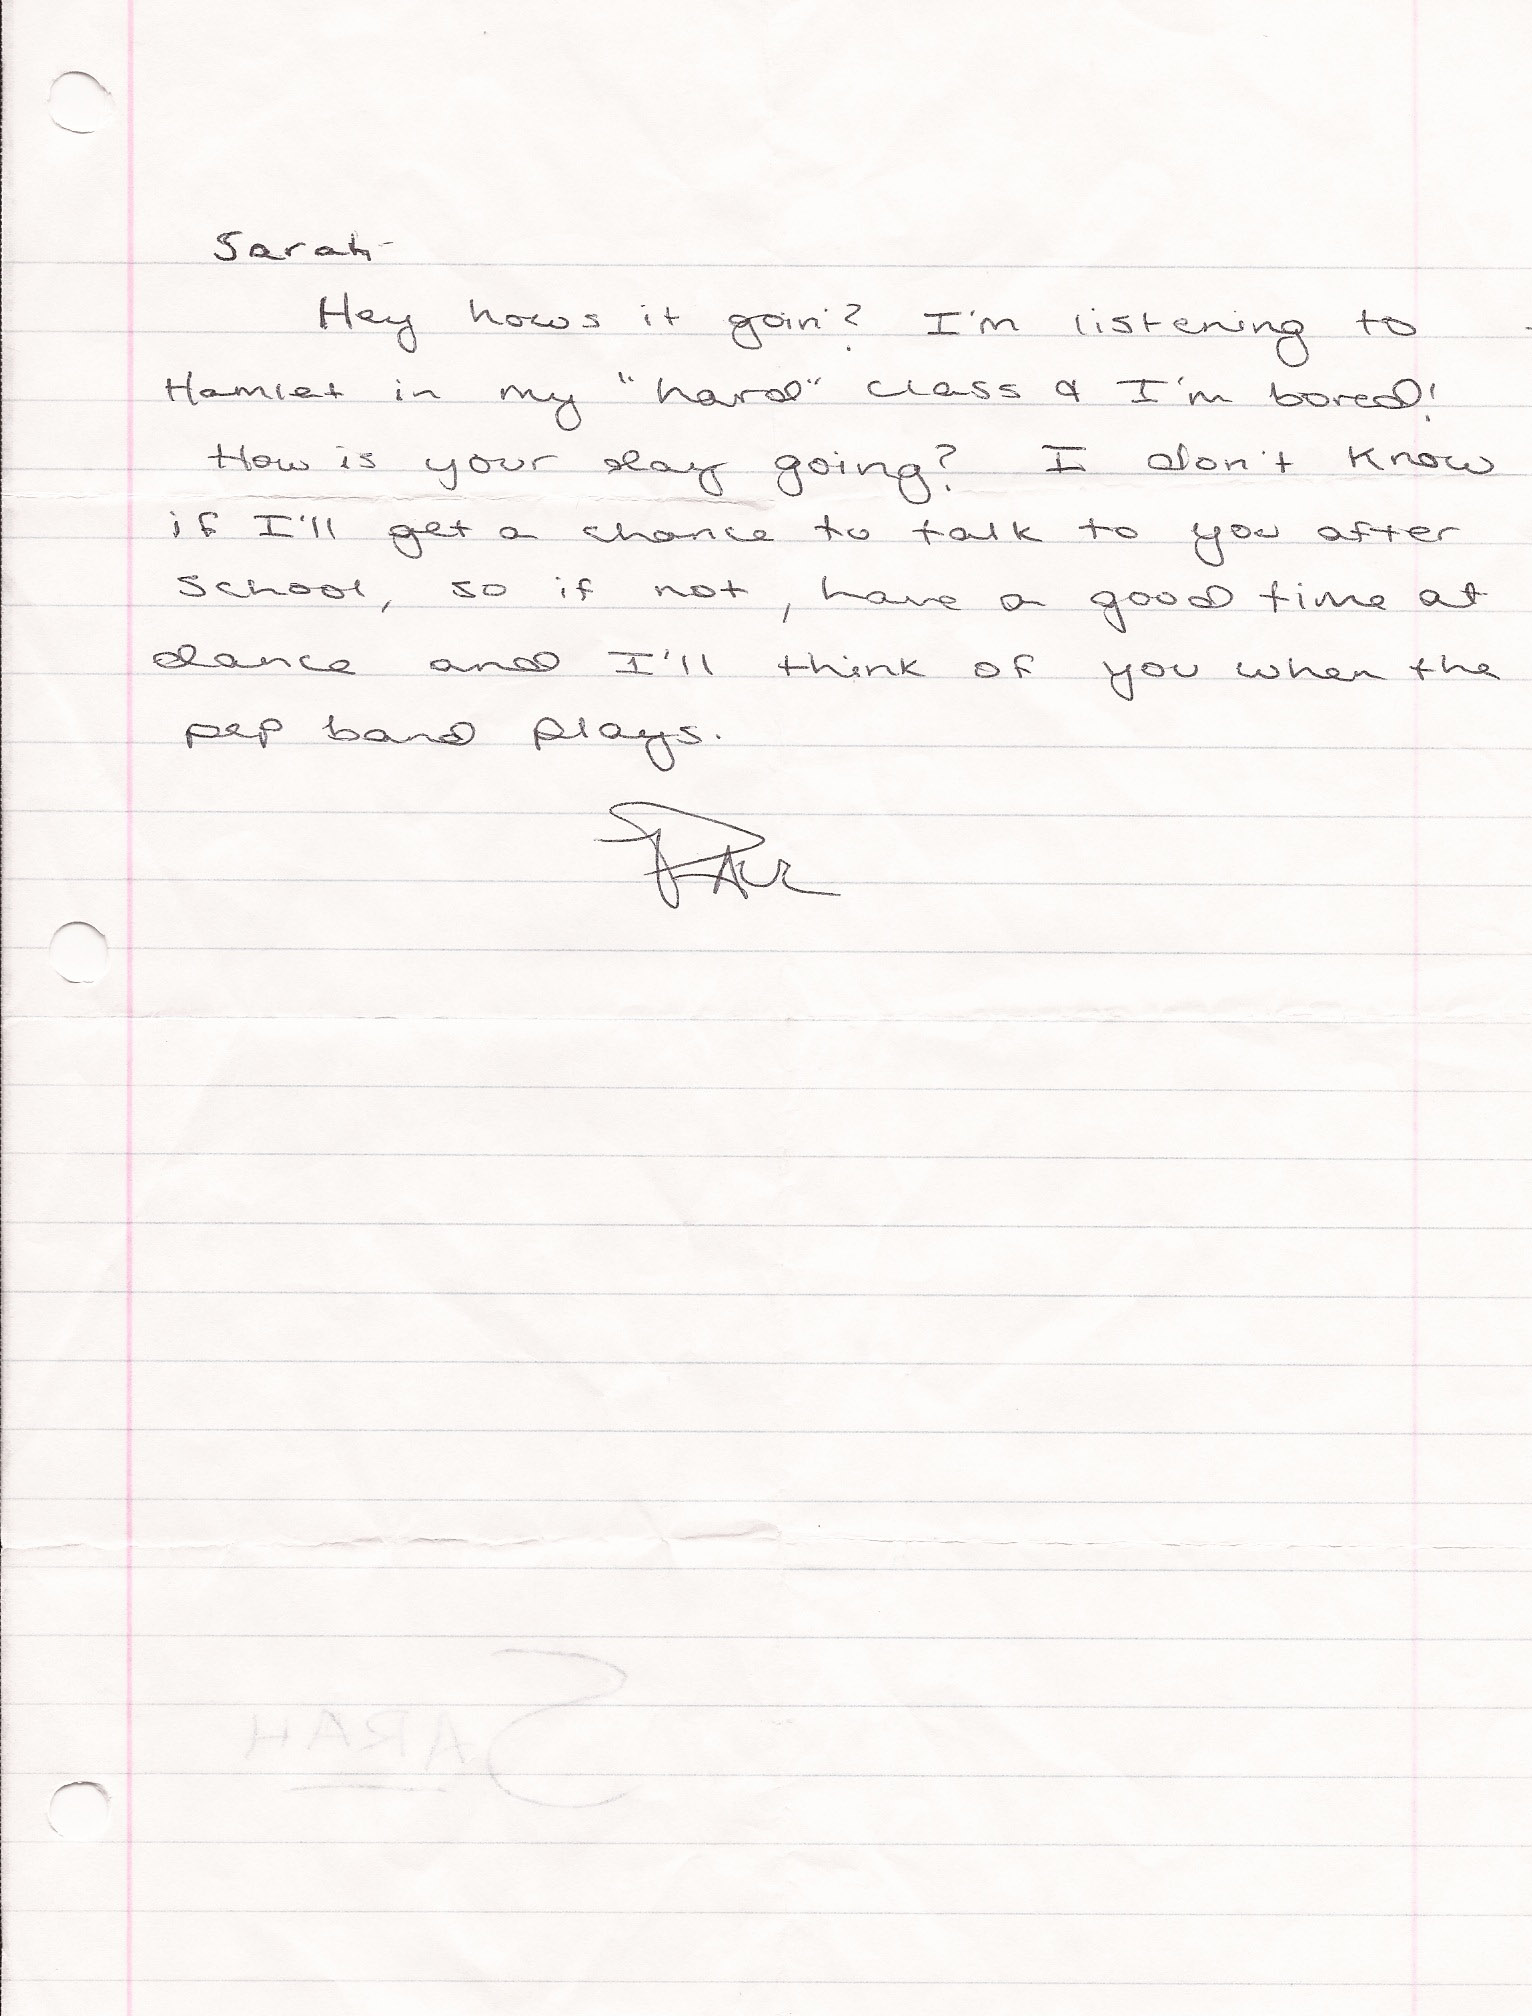 Sarah-
Hey hows it goin'? I'm listening to
Hamlet in my "hard" class & I'm bored!
How is your day going? I don't know
if I'll get a chance to talk to you after
school, so if not, have a good time at
dance and I'll think of you when the
pep band plays.
SARAH